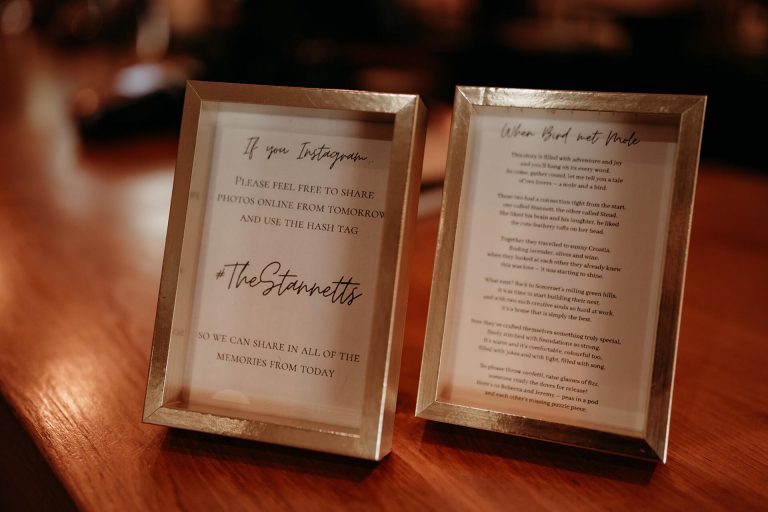 If you Instagram...
PLEASE FEEL FREE TO SHARE
PHOTOS ONLINE FROM TOMORROW
AND USE THE HASH TAG
#TheStannetts
SO WE CAN SHARE IN ALL OF THE
MEMORIES FROM TODAY
When Bird met Mole
This story is filled with adventure and joy
and you'll hang on its every word.
So come, gather round, let me tell you a tale
of two lovers – a mole and a bird.
These two had a connection right from the start,
one called Stannett, the other called Stead.
She liked his brain and his laughter, he liked
the cute feathery tufts on her head.
Together they travelled to sunny Croatia,
finding lavender, olives and wine.
when they looked at each other they already knew
this was love – it was starting to shine.
What next? Back to Somerset's rolling green hills,
it was time to start building their nest.
and with two such creative souls so hard at work,
it's a home that is simply the best.
Now they've crafted themselves something truly special,
finely stitched with foundations so strong.
It's warm and it's comfortable, colourful too,
filled with jokes and with light, filled with song.
So please throw confetti, raise glasses of fizz,
someone ready the doves for release!
Here's to Rebecca and Jeremy – peas in a pod
and each other's missing puzzle piece.